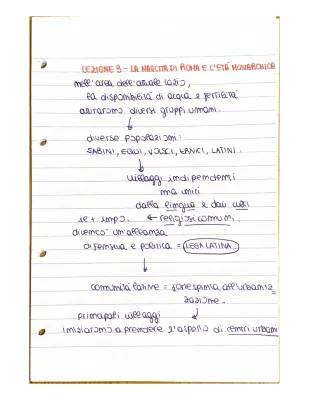 LEZIONE 3 - LA NASCITA DI ROMA E L'ETÀ MONARCHICA
nell'area dell'attuale lazio,
la disponibilità di acqua e fertilità
attirarono diversi gruppi umani.
diverse popolazioni:
SABINI, EQUI, VOLSCI, ERNICI, LATINI.
villaggi indipendenti
ma uniti
dalla lingua e dai usi
religiosi comuni.
se + imp.
divenco un'alleanza
difensiva e politica = LEGA LATINA
comunità latine = forte spinta all'urbaniz
zazione.
principali villaggi
iniziarono a prendere l'aspetto di centri urbani